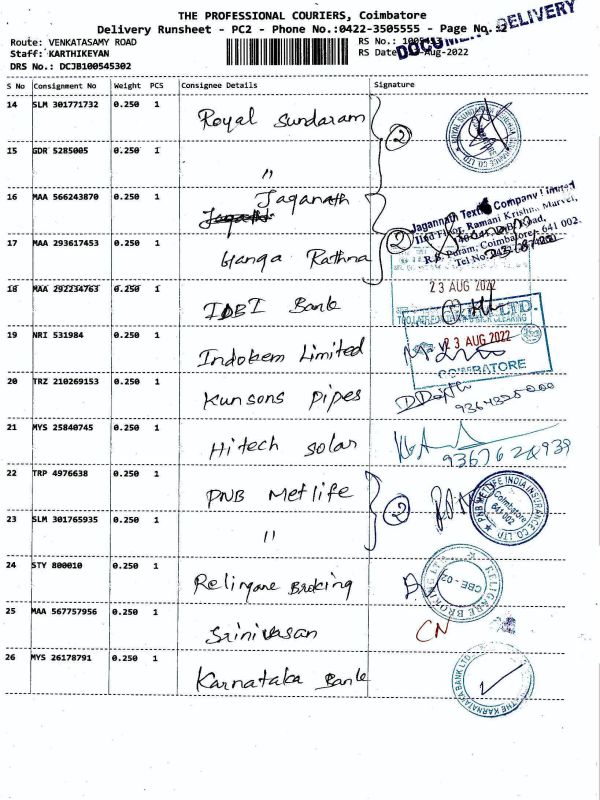 THE PROFESSIONAL COURIERS, Coimbatore
Delivery Runsheet - PC2 - Phone No.:0422-3505555 - Page No.
DELIVERY
Route: VENKATASAMY ROAD
RS No.:
Staff: KARTHIKEYAN
RS Date: Aug-2022
DRS No.: DCJB100545302
S No Consignment No Weight PCS Consignee Details Signature
14 SLM 301771732 0.250 1 Royal Sundaram 2
15 GDR 5285005 0.250 1 "
16 MAA 566243870 0.250 1 Jaganath
Jagannath Textile Company Limited
17 MAA 293617453 0.250 1 Ganga Rathna 2
R.S. Puram, Coimbatore - 641 002.
18 MAA 292234763 0.250 1 IDBI Bank
23 AUG 2022
19 NRI 531984 0.250 1 Indokem Limited
23 AUG 2022
COIMBATORE
20 TRZ 210269153 0.250 1 Kunsons Pipes
21 MYS 25840745 0.250 1 Hitech Solar
22 TRP 4976638 0.250 1 PNB Metlife 2
PNB METLIFE INDIA INSURANCE CO LTD
Coimbatore
641 002
23 SLM 301765935 0.250 1 "
24 STY 800010 0.250 1 Religare Broking
RELIGARE BROKING LTD
CBE - 02
25 MAA 567757956 0.250 1 Srinivasan CN
26 MYS 26178791 0.250 1 Karnataka Bank
THE KARNATAKA BANK LTD.